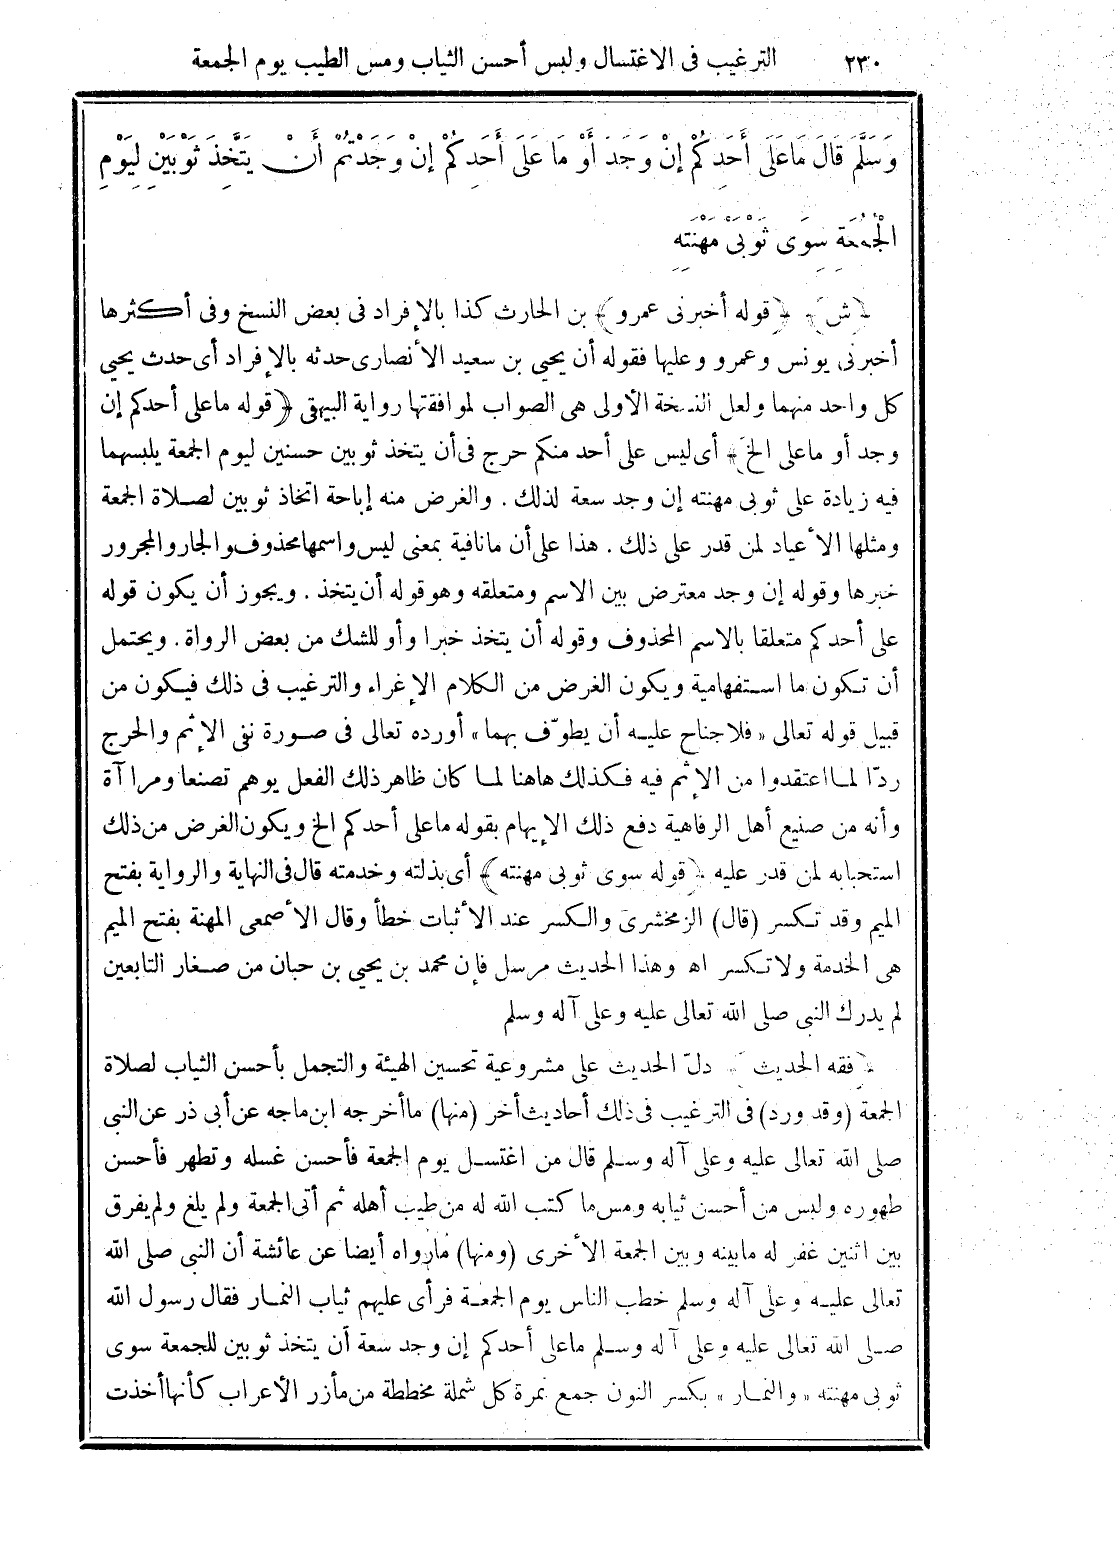 ٢٣٠ الترغيب فى الاغتسال ولبس أحسن الثياب ومس الطيب يوم الجمعة
وَسَلَّمَ قَالَ مَا عَلَى أَحَدِكُمْ إِنْ وَجَدَ أَوْ مَا عَلَى أَحَدِكُمْ إِنْ وَجَدْتُمْ أَنْ يَتَّخِذَ ثَوْبَيْنِ لِيَوْمِ
الْجُمُعَةِ سِوَى ثَوْبَىْ مَهْنَتِهِ
﴿ش﴾ ﴿قوله أخبرنى عمرو﴾ بن الحارث كذا بالإفراد فى بعض النسخ وفى أكثرها
أخبرنى يونس وعمرو وعليها فقوله أن يحيى بن سعيد الأنصارى حدثه بالإفراد أى حدث يحيى
كل واحد منهما ولعل النسخة الأولى هى الصواب لموافقتها رواية البيهقى ﴿قوله ما على أحدكم إن
وجد أو ما على الخ﴾ أى ليس على أحد منكم حرج فى أن يتخذ ثوبين حسنين ليوم الجمعة يلبسهما
فيه زيادة على ثوبى مهنته إن وجد سعة لذلك . والغرض منه إباحة اتخاذ ثوبين لصلاة الجمعة
ومثلها الأعياد لمن قدر على ذلك . هذا على أن ما نافية بمعنى ليس واسمها محذوف والجار والمجرور
خبرها وقوله إن وجد معترض بين الاسم ومتعلقه وهو قوله أن يتخذ . ويجوز أن يكون قوله
على أحدكم متعلقا بالاسم المحذوف وقوله أن يتخذ خبرا وأو للشك من بعض الرواة . ويحتمل
أن تكون ما استفهامية ويكون الغرض من الكلام الإغراء والترغيب فى ذلك فيكون من
قبيل قوله تعالى «فلا جناح عليه أن يطوّف بهما» أورده تعالى فى صورة نفى الإثم والحرج
ردّا لما اعتقدوا من الإثم فيه فكذلك هاهنا لما كان ظاهر ذلك الفعل يوهم تصنعا ومراآة
وأنه من صنيع أهل الرفاهية دفع ذلك الإيهام بقوله ما على أحدكم الخ ويكون الغرض من ذلك
استحبابه لمن قدر عليه ﴿قوله سوى ثوبى مهنته﴾ أى بذلته وخدمته قال فى النهاية والرواية بفتح
الميم وقد تكسر (قال) الزمخشرى والكسر عند الأثبات خطأ وقال الأصمعى المهنة بفتح الميم
هى الخدمة ولا تكسر اه وهذا الحديث مرسل فإن محمد بن يحيى بن حبان من صغار التابعين
لم يدرك النبى صلى الله تعالى عليه وعلى آله وسلم
﴿فقه الحديث﴾ دلّ الحديث على مشروعية تحسين الهيئة والتجمل بأحسن الثياب لصلاة
الجمعة (وقد ورد) فى الترغيب فى ذلك أحاديث أخر (منها) ما أخرجه ابن ماجه عن أبى ذر عن النبى
صلى الله تعالى عليه وعلى آله وسلم قال من اغتسل يوم الجمعة فأحسن غسله وتطهر فأحسن
طهوره ولبس من أحسن ثيابه ومس ما كتب الله له من طيب أهله ثم أتى الجمعة ولم يلغ ولم يفرق
بين اثنين غفر له ما بينه وبين الجمعة الأخرى (ومنها) مارواه أيضا عن عائشة أن النبى صلى الله
تعالى عليه وعلى آله وسلم خطب الناس يوم الجمعة فرأى عليهم ثياب النمار فقال رسول الله
صلى الله تعالى عليه وعلى آله وسلم ما على أحدكم إن وجد سعة أن يتخذ ثوبين للجمعة سوى
ثوبى مهنته «والنمار» بكسر النون جمع نمرة كل شملة مخططة من مآزر الأعراب كأنها أخذت